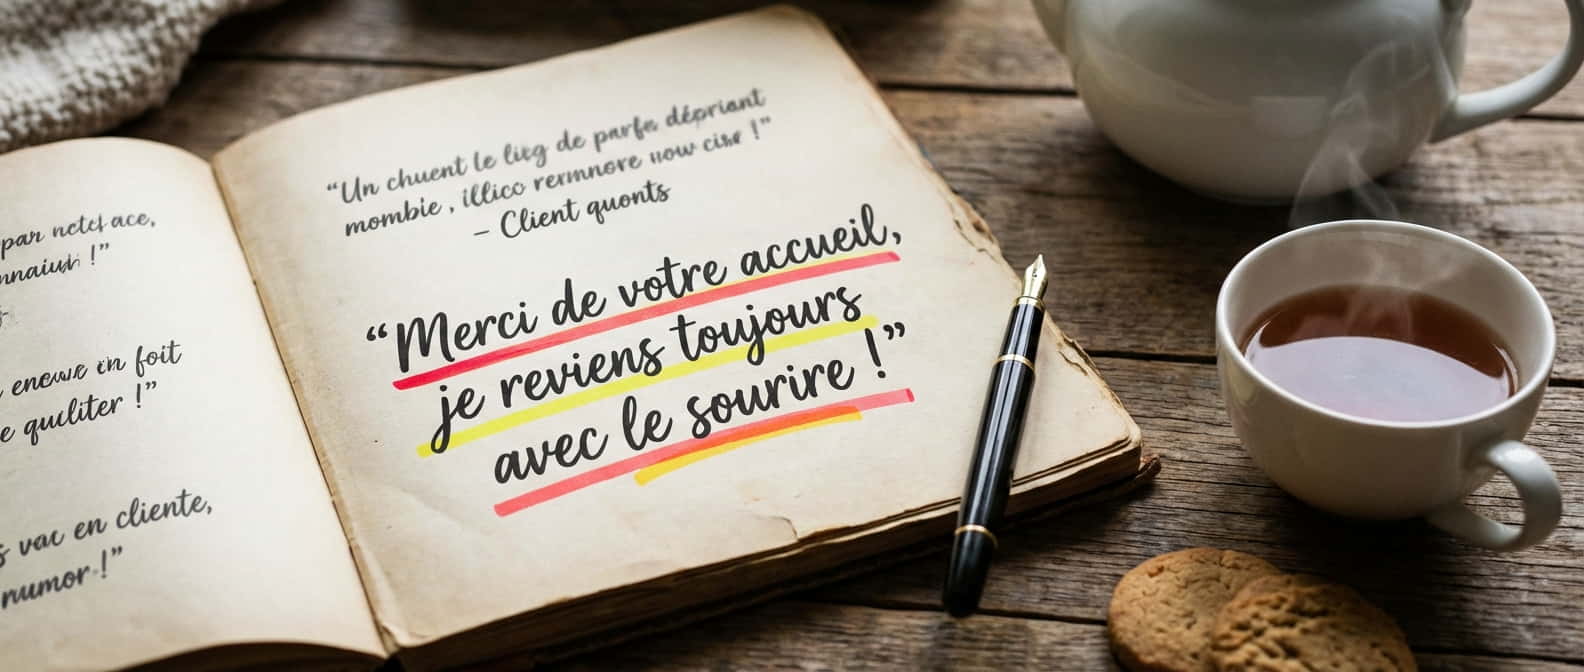 par
!"
en foit
quliter !"
vac en cliente,
numor !"
"Un chuent le de parfe dépriant
mombie, illico remnore now !"
– Client quonts
"Merci de votre accueil,
je reviens toujours
avec le sourire !"